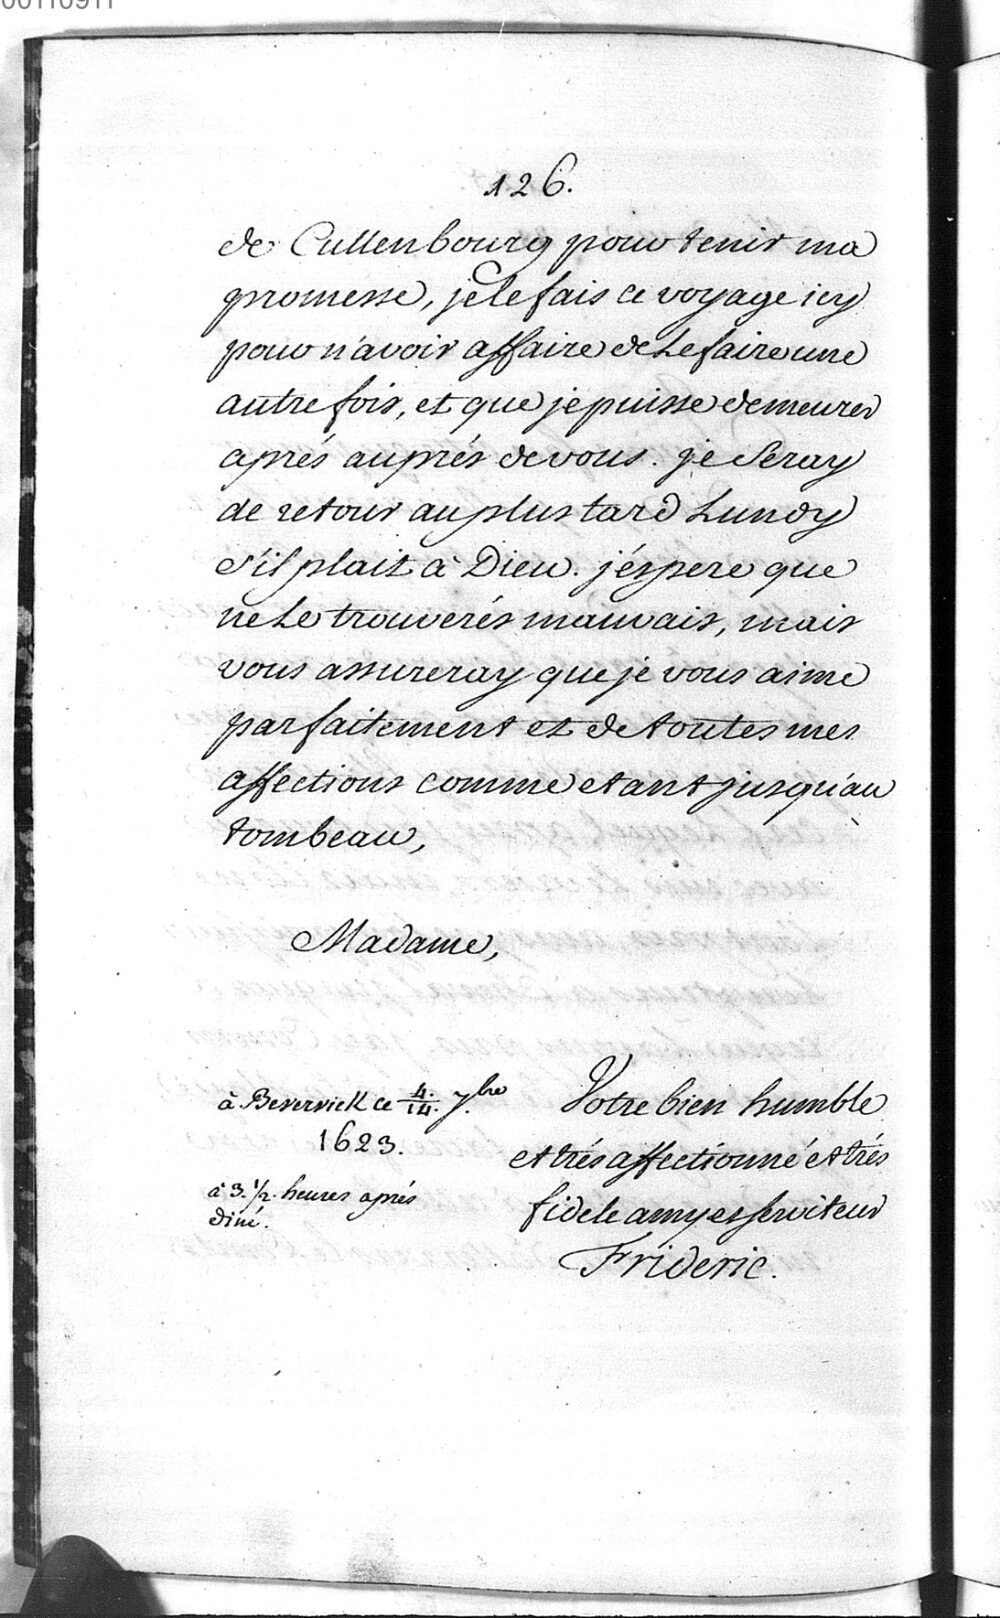 00110911
126.
de Cullenbourg pour tenir ma
promesse, je le fais ce voyage icy
pour n'avoir affaire de Le faire une
autre fois, et que je puisse demeurer
aprés auprés de vous. je Seray
de retour au plus tard Lundy
s'il plait à Dieu. j'éspere que
ne Le trouverés mauvais, mais
vous assureray que je vous aime
parfaitement et de toutes mes
affections comme etant jusqu'au
tombeau,
Madame,
à Beverwick ce 4./14. 7.bre
1623.
à 3. 1/2. heures aprés
diné.
Votre bien humble
et trés affectionné et trés
fidele amy et serviteur
Frideric.